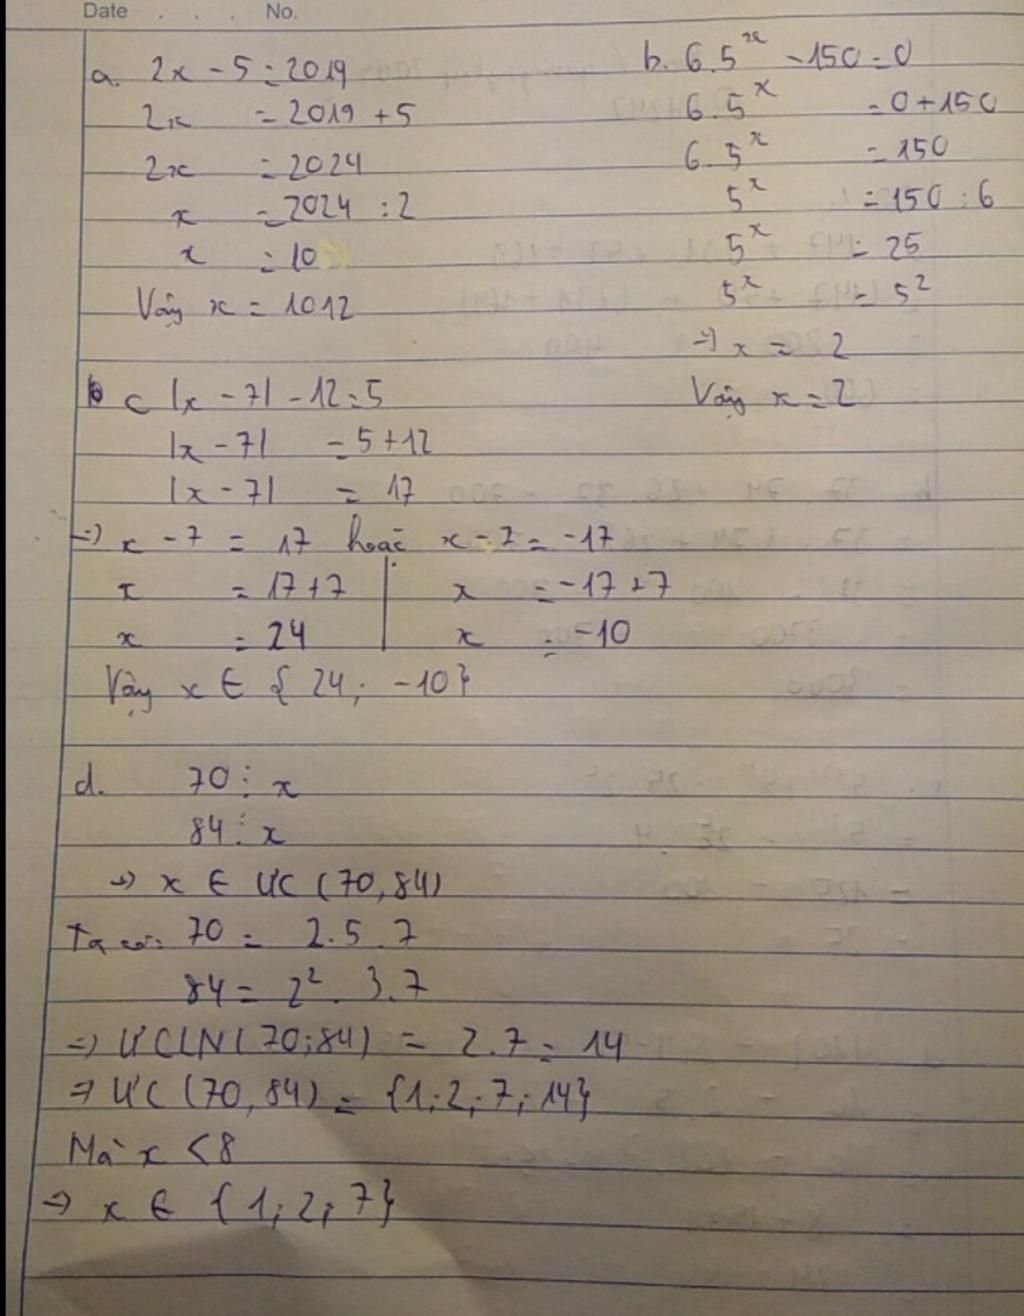 Date . . . No.
a. 2x - 5 = 2019
2x = 2019 + 5
2x = 2024
x = 2024 : 2
x = 10
Vậy x = 1012
b. 6.5^x - 150 = 0
6.5^x = 0 + 150
6.5^x = 150
5^x = 150 : 6
5^x = 25
5^x = 5^2
=> x = 2
Vậy x = 2
c |x - 7| - 12 = 5
|x - 7| = 5 + 12
|x - 7| = 17
=> x - 7 = 17 hoặc x - 7 = -17
x = 17 + 7 | x = -17 + 7
x = 24 | x = -10
Vậy x ∈ { 24; -10}
d. 70 ⋮ x
84 ⋮ x
=> x ∈ ƯC (70, 84)
Ta có: 70 = 2.5.7
84 = 2^2 . 3.7
=> ƯCLN (70; 84) = 2.7 = 14
=> ƯC (70, 84) = {1; 2; 7; 14}
Mà x < 8
=> x ∈ { 1; 2; 7}